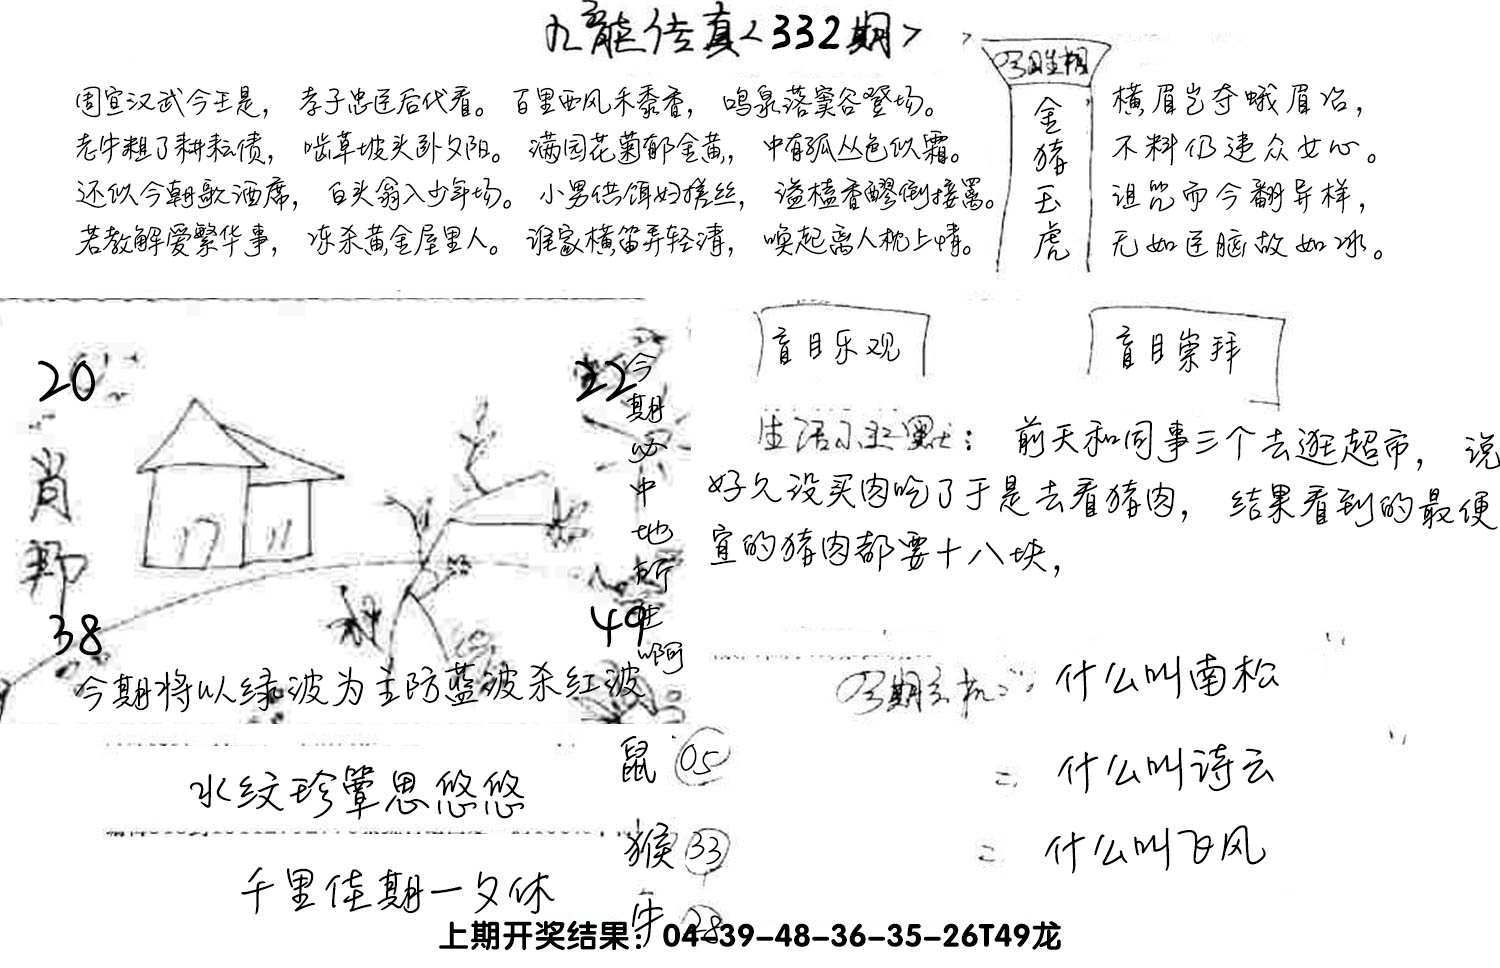 九龙传真<332期>
周宣汉武今王是，孝子忠臣后代看。百里西风禾黍香，鸣泉落窦谷登场。
老牛粗了耕耘债，啮草坡头卧夕阳。满园花菊郁金黄，中有孤丛色似霜。
还似今朝歌酒席，白头翁入少年场。小男供饵妇搓丝，溢榼香醪倒接䍦。
若教解爱繁华事，冻杀黄金屋里人。谁家横笛弄轻清，唤起离人枕上情。
今期生相
金猪玉虎
横眉岂夺蛾眉冶，
不料仍违众女心。
诅咒而今翻异样，
无如臣脑故如冰。
20
22
肖
38
49
今期必中地所生啊
今期将以绿波为主防蓝波杀红波
盲目乐观
盲目崇拜
生活小幽默：前天和同事三个去逛超市，说
好久没买肉吃了于是去看猪肉，结果看到的最便
宜的猪肉都要十八块，
今期玄机：什么叫南松
什么叫诗云
什么叫飞风
水纹珍簟思悠悠
千里佳期一夕休
鼠 05
猴 33
牛 28
上期开奖结果：04-39-48-36-35-26T49龙